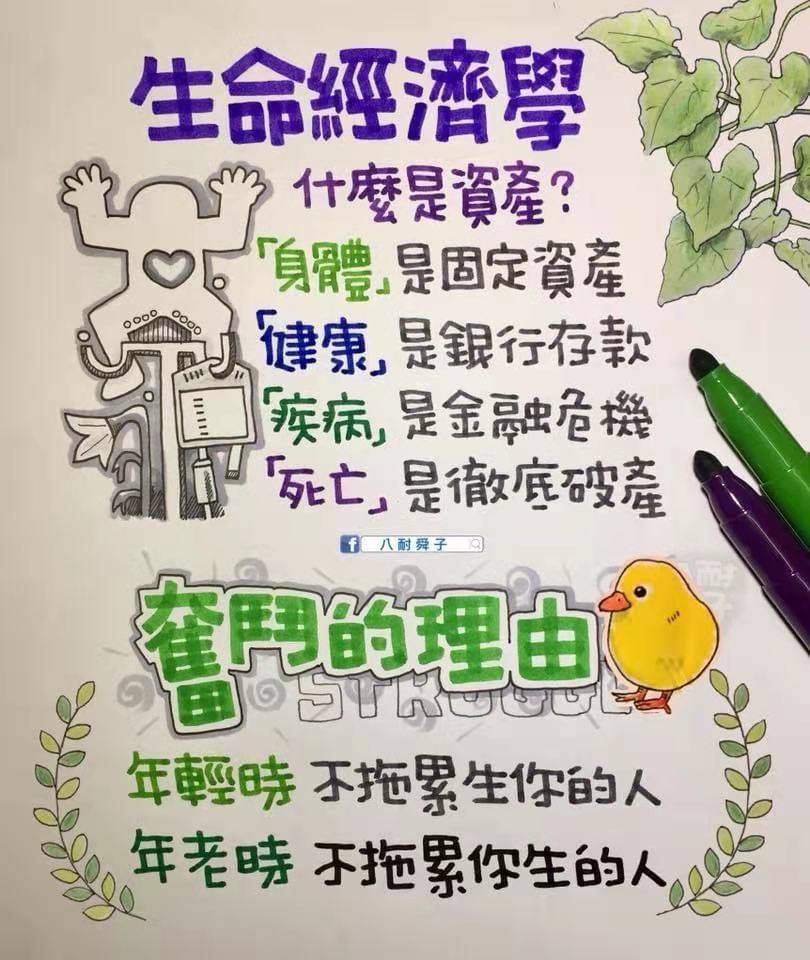 生命經濟學
什麼是資產?
「身體」是固定資產
「健康」是銀行存款
「疾病」是金融危機
「死亡」是徹底破產
f 八耐舜子
奮鬥的理由
STRUGGLE
年輕時 不拖累生你的人
年老時 不拖累你生的人